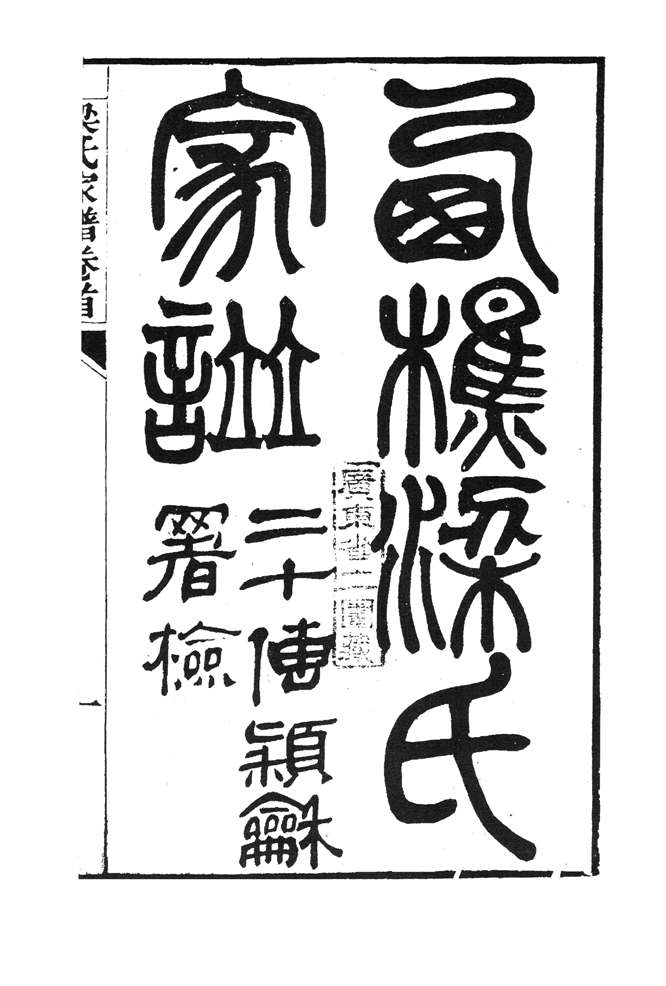 西樵梁氏
家譜
二十傳穎龢
署檢
廣東省立圖藏
梁氏家譜卷首
一